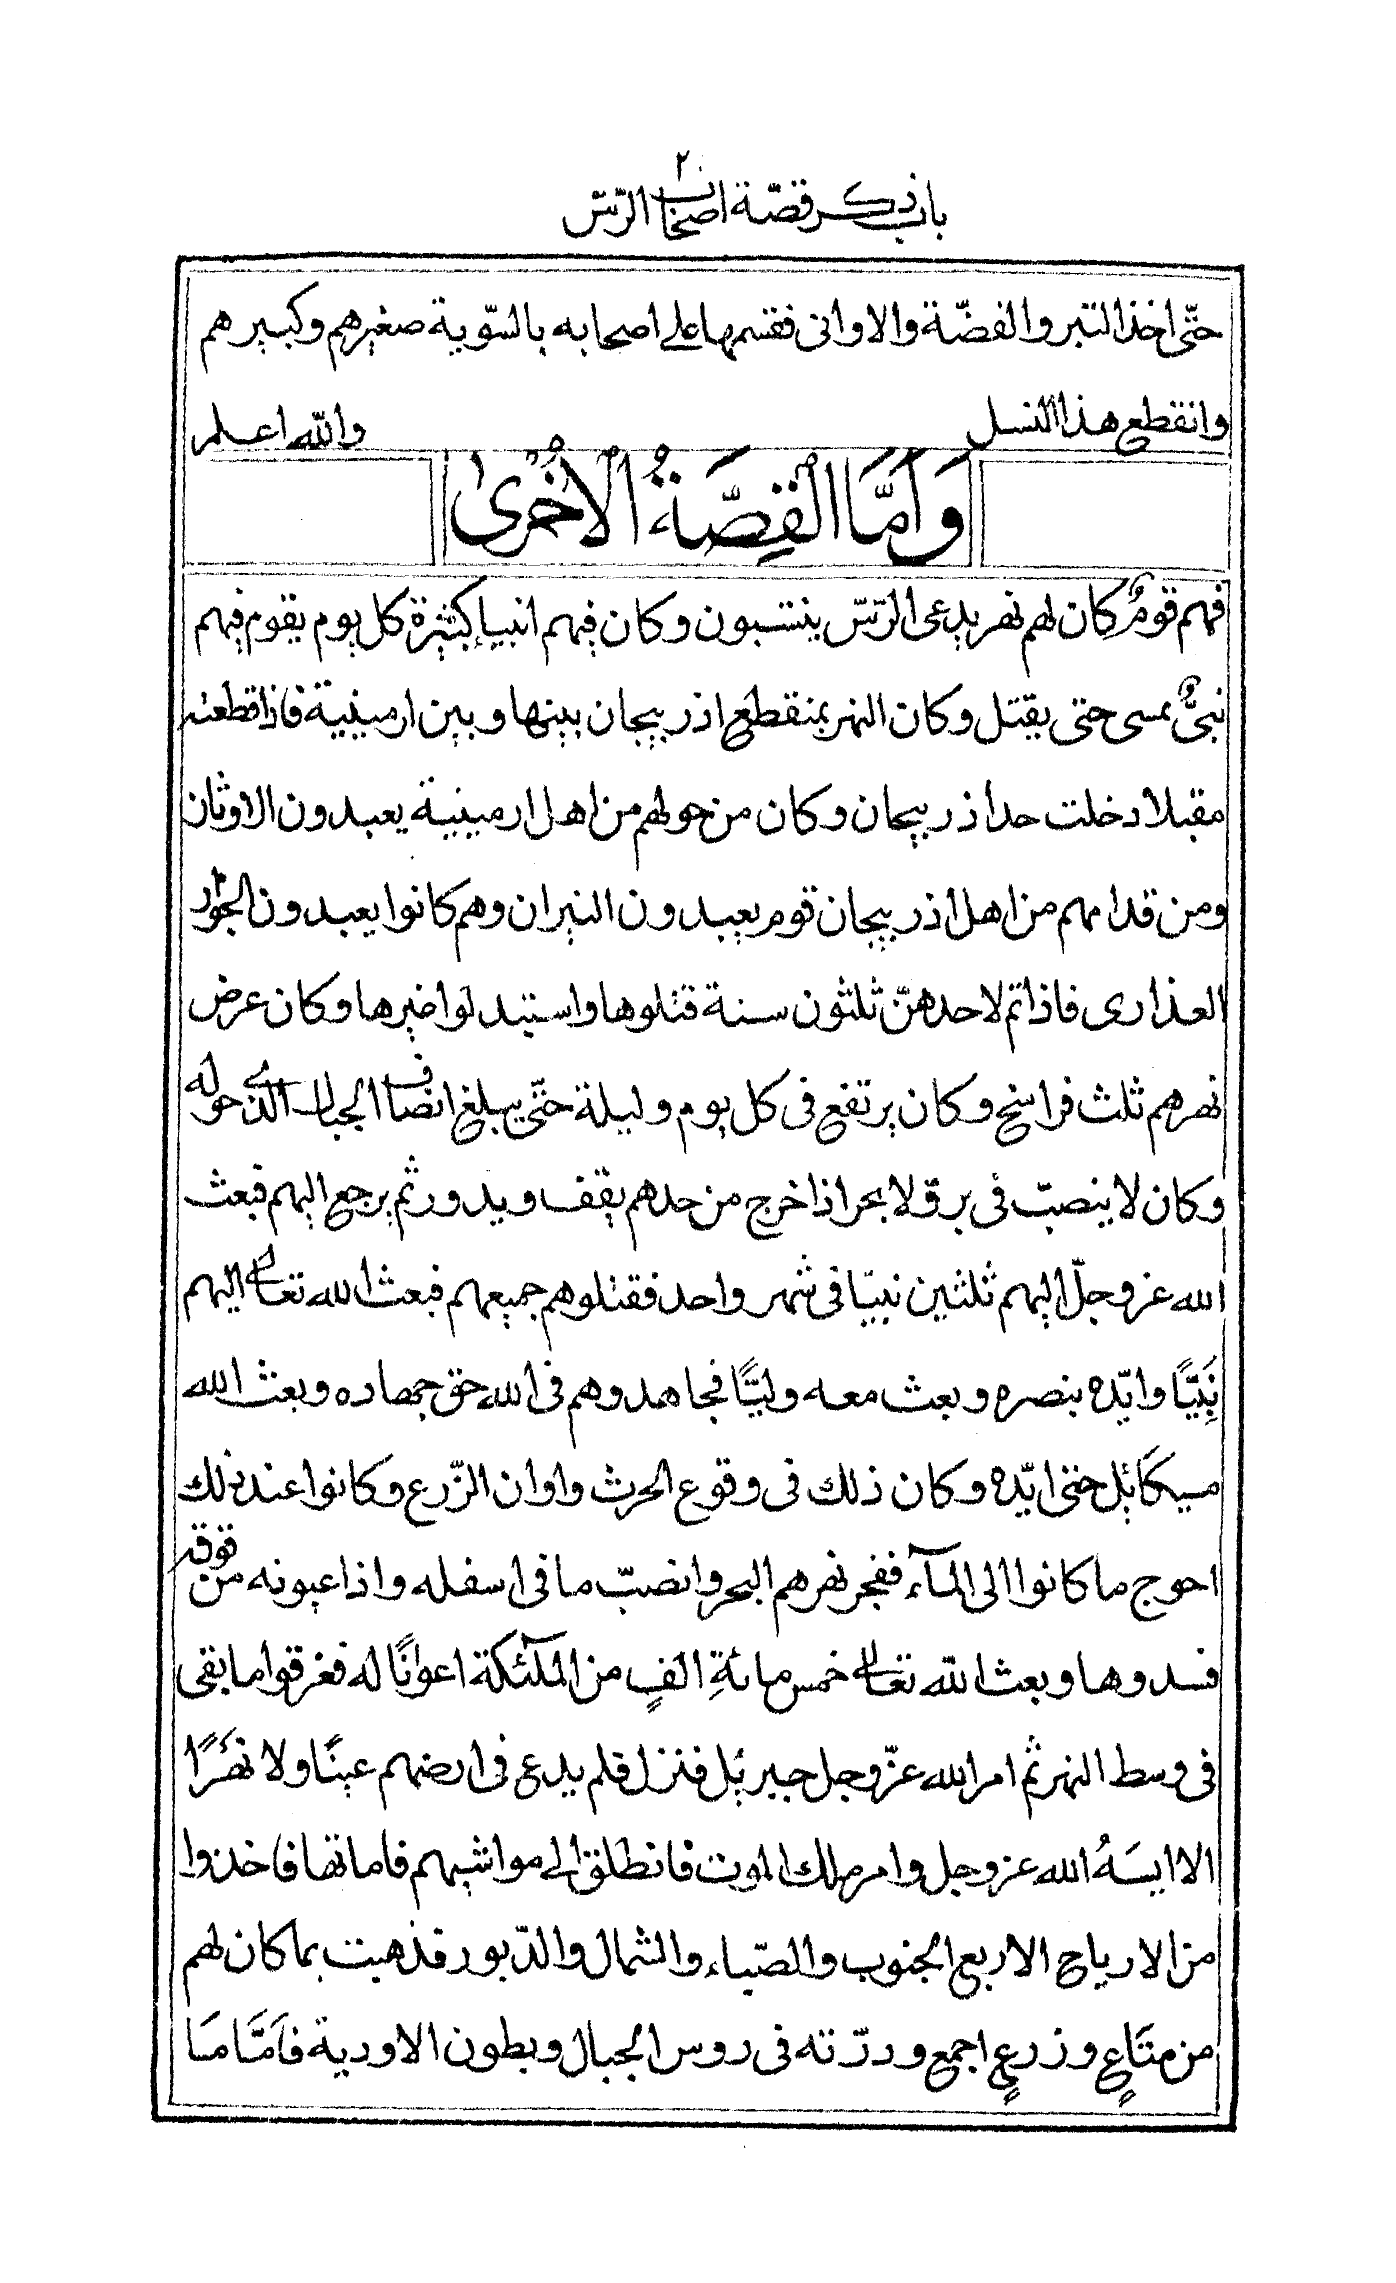 ٢٠
باب ذكر قصّة اصحاب الرّسّ
حتّى اخذ التبر والفضّة والاوانى فقسمها على اصحابه بالسّوية صغيرهم وكبيرهم
وانقطع هذا النسل والله اعلم
وَاَمَّا الْقِصَّةُ الْاُخْرىٰ
فهم قومٌ كان لهم نهر يدعى الرّسّ ينتسبون وكان فيهم انبياء كثيرة كل يوم يقوم فيهم
نبىٌّ يمسى حتى يقتل وكان النهر بمنقطع اذربيجان بينها وبين ارمينية فاذا قطعته
مقبلا دخلت حد اذربيجان وكان من حولهم من اهل ارمينية يعبدون الاوثان
ومن قدامهم من اهل اذربيجان قوم يعبدون النيران وهم كانوا يعبدون الجوار
العذارى فاذا تم لاحدهنّ ثلثون سنة قتلوها واستبدلوا غيرها وكان عرض
نهرهم ثلث فراسخ وكان يرتفع فى كل يوم وليلة حتّى يبلغ انصاف الجبال الذى حوله
وكان لا ينصبّ فى برّ ولا بحر اذا خرج من حدهم يقف ويدور ثم يرجع اليهم فبعث
الله عز وجلّ اليهم ثلثين نبيّا فى شهر واحد فقتلوهم جميعهم فبعث الله تعالى اليهم
نَبِيًّا وايّده بنصره وبعث معه وليًّا فجاهدوهم فى الله حق جهاده وبعث الله
ميكائيل حتى ايّده وكان ذلك فى وقوع الحرث واوان الزّرع وكانوا عند ذلك
احوج ما كانوا الى المآء ففجر نهرهم البحر وانصبّ ما فى اسفله واذا عيونه من فوقه
فسدوها وبعث الله تعالى خمس مائةِ الفٍ من الملٓئكة اعوانًا له فغرقوا ما بقى
فى وسط النهر ثم امر الله عزّ وجل جبرئيل فنزل فلم يدع فى ارضهم عينًا ولا نَهَرًا
الا ايبسَهُ الله عز وجل وامر ملك الموت فانطلق الى مواشيهم فاماتها فاخذوا
من الارياح الاربع الجنوب والصّباء والشمال والدّبور فذهبت بما كان لهم
من متَاعٍ وزرعٍ اجمع ودرّته فى روس الجبال وبطون الاودية فاَمَّا مَا